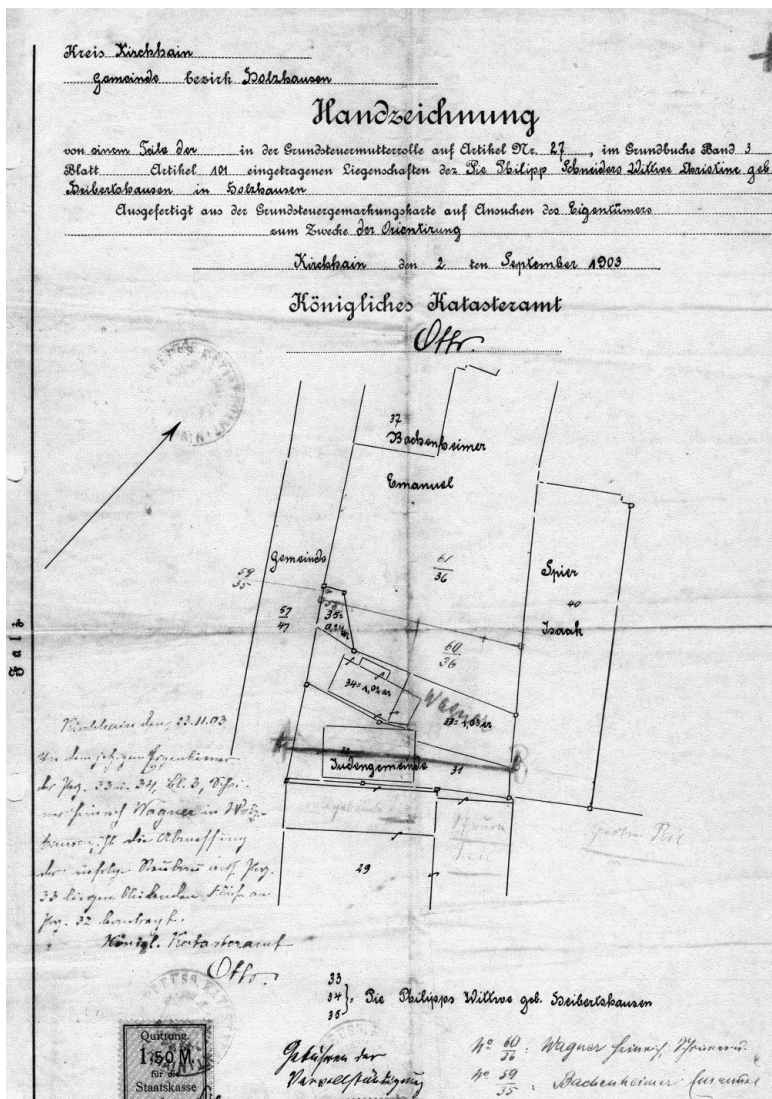 Kreis Kirchhain
Gemeinde bezirk Holzhausen
Handzeichnung
von einem Teile der in der Grundsteuermutterrolle auf Artikel Nr. 27, im Grundbuche Band 3
Blatt Artikel 101 eingetragenen Liegenschaften der Pie Philipp Schneiders Wittwe Christine geb
Heibertshausen in Holzhausen
Ausgefertigt aus der Grundsteuergemarkungskarte auf Ansuchen des Eigentümers
zum Zwecke der Orientirung
Kirchhain den 2 ten September 1903
Königliches Katasteramt
Otto.
37
Bachenheimer
Emanuel
Gemeinde
61
36
Spier
40
Isaak
59
35
57
47
35=
60
36
34=1,02 ar
Wagner
33=1,03 ar
Judengemeinde
31
29
Kirchhain den, 23.11.03
Von dem jetzigen Eigentümer
der Prz. 33 u. 34, Bl. 2, Schrei-
ner Heinrich Wagner in Holz-
hausen, ist die Abmessung
Neubau auf Prz.
33 liegen bleibenden Fläche an
Prz. 32 beantragt.
Königl. Katasteramt
Otto.
33
34 }= Pie Philipps Wittwe geb. Heibertshausen
35
Quittung.
1,50 M.
für die
Staatskasse
Gebühren der
Vervollständigung
No 60/36 : Wagner Heinrich, Schreiner.
No 59/35 : Bachenheimer Emanuel